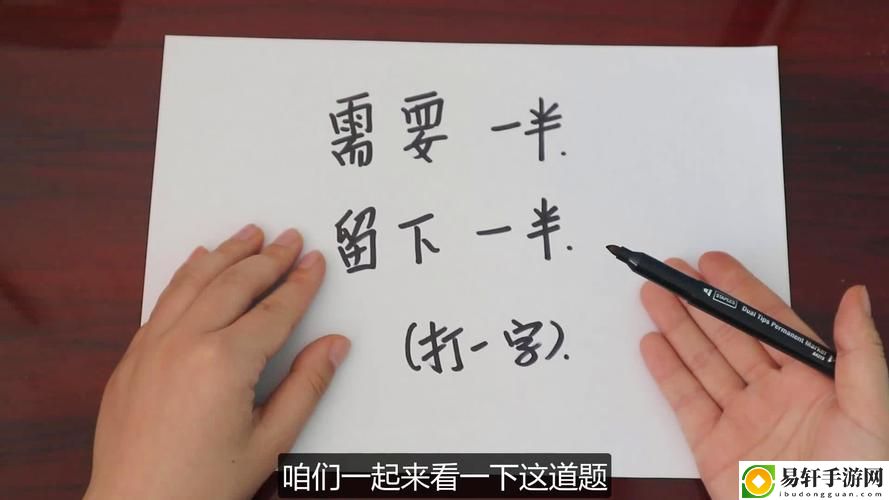 需要一半.
留下一半.
(打一字).
STAPLES
Dual Tips Permanent Marker
咱们一起来看一下这道题
易轩手游网
ibudongguan.com